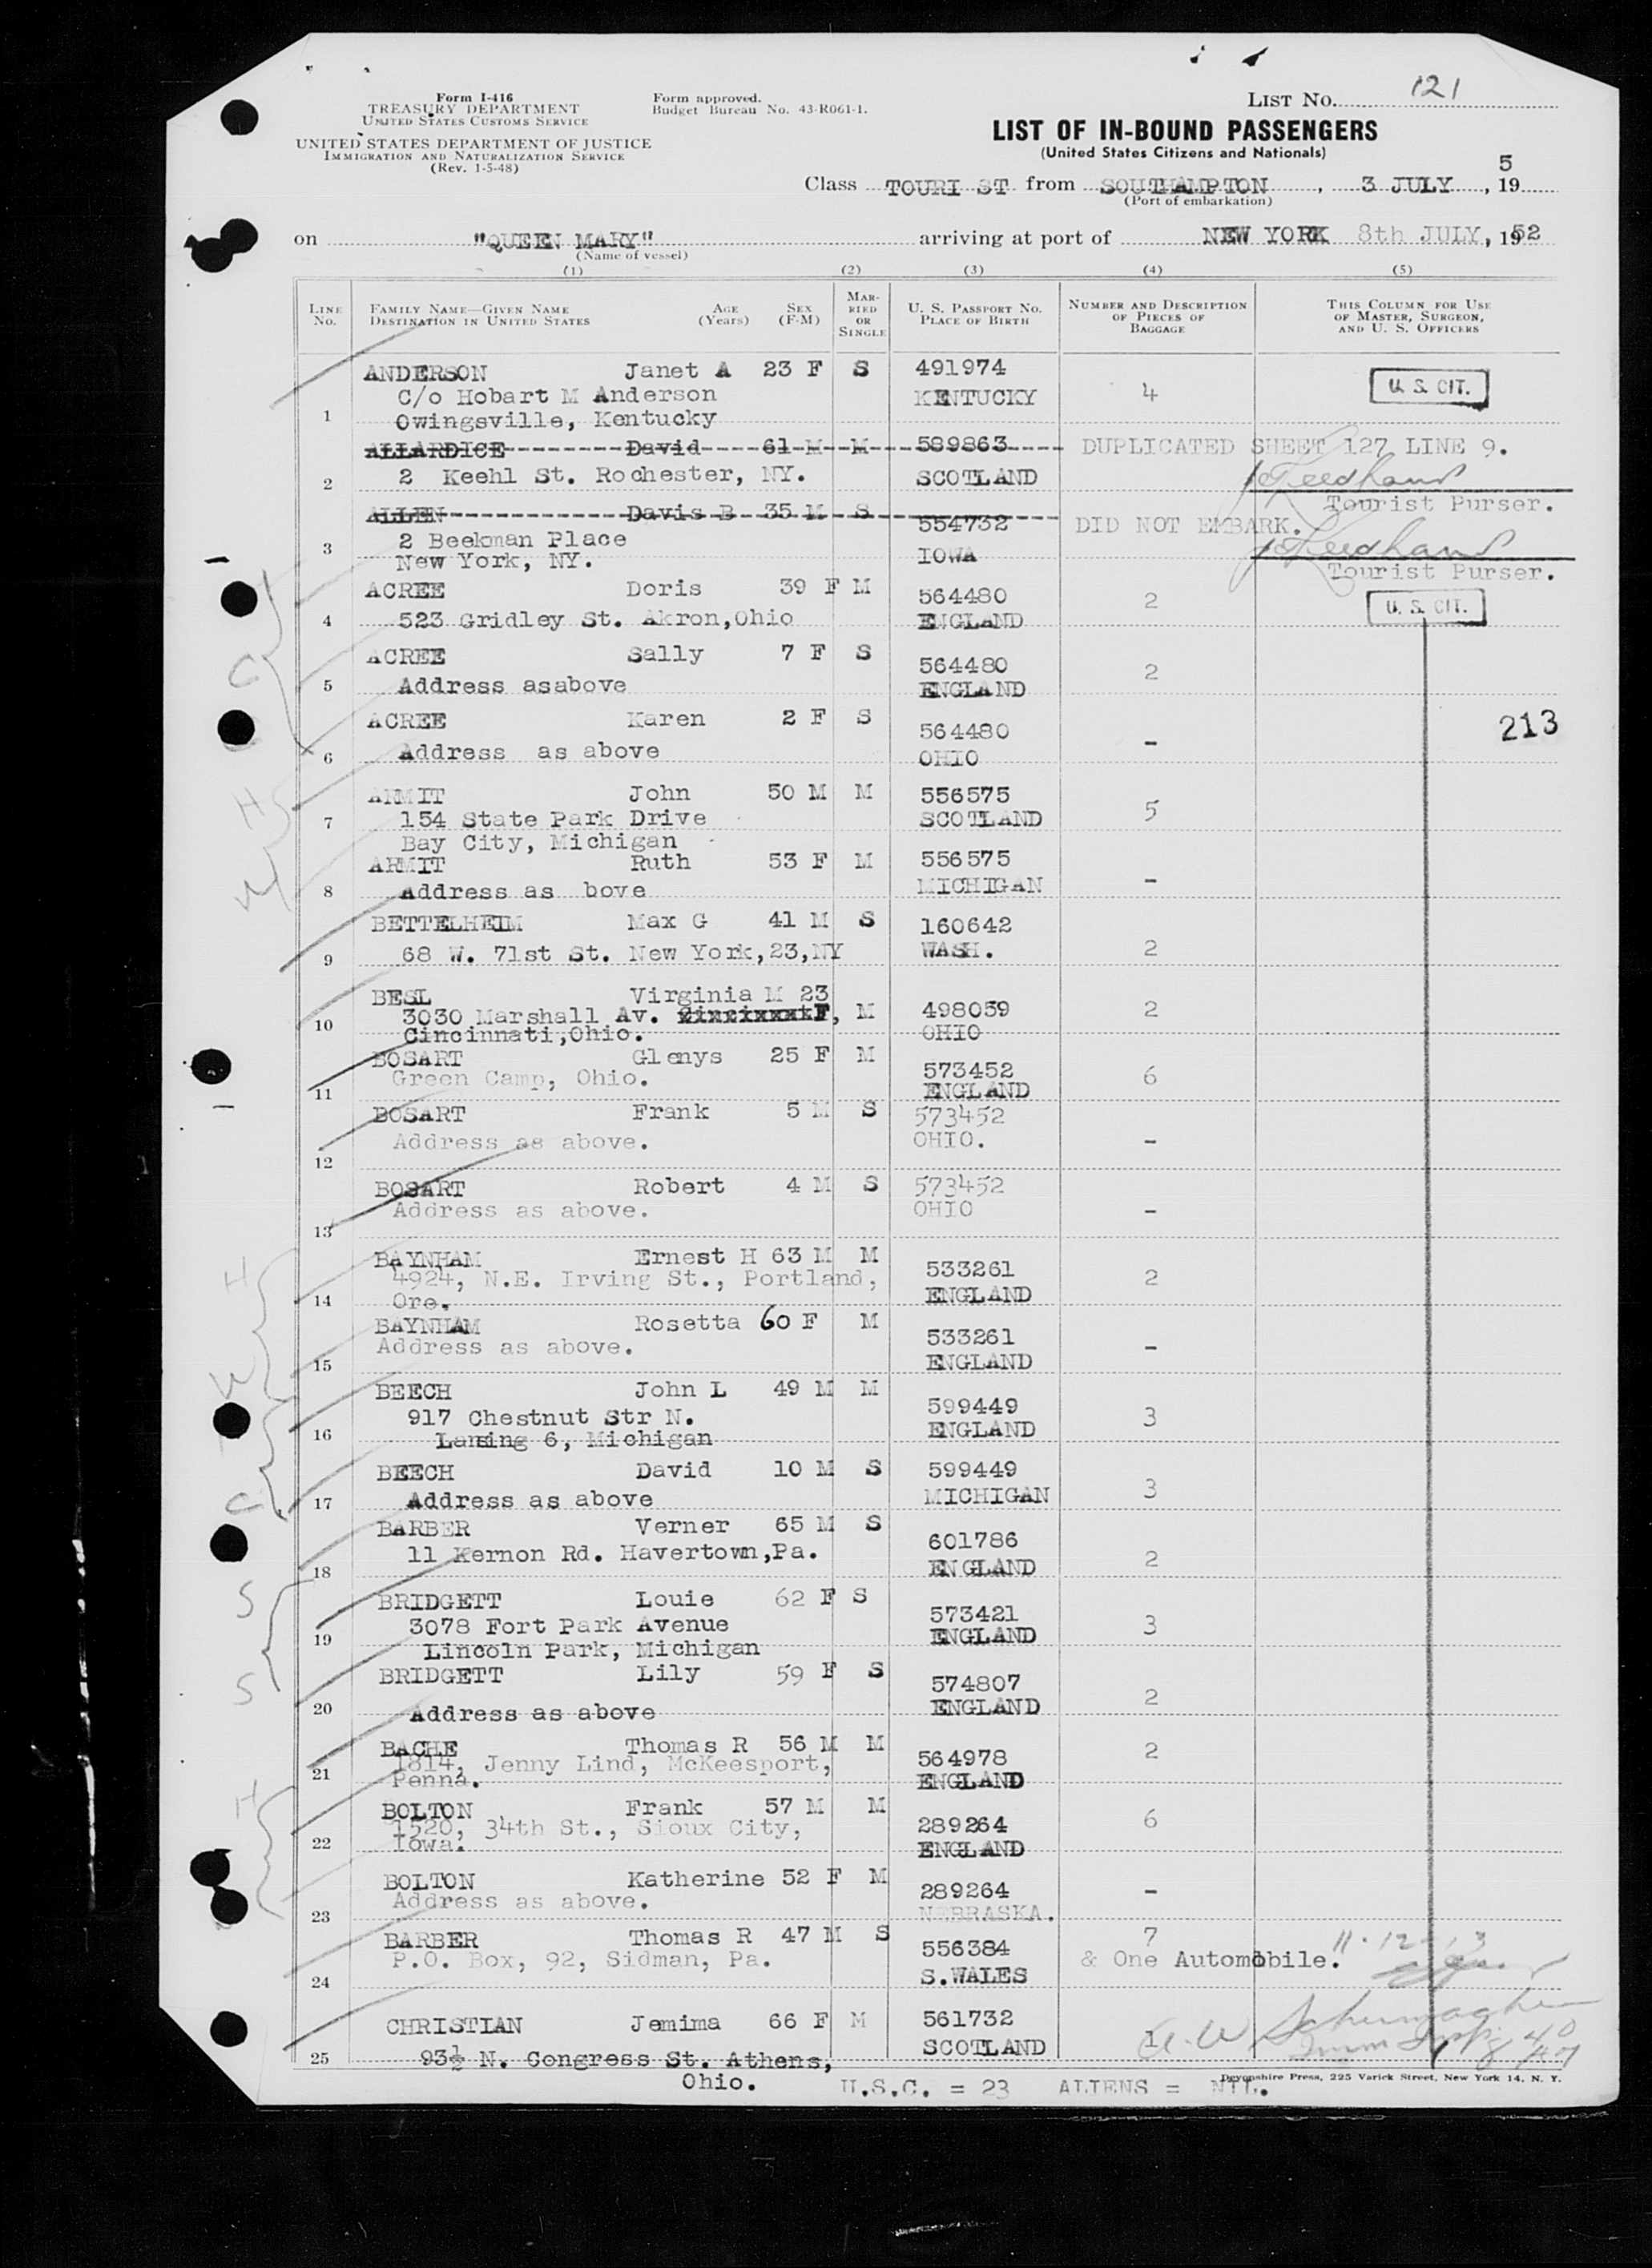 Form I-416
TREASURY DEPARTMENT
UNITED STATES CUSTOMS SERVICE
UNITED STATES DEPARTMENT OF JUSTICE
IMMIGRATION AND NATURALIZATION SERVICE
(Rev. 1-5-48)
Form approved.
Budget Bureau No. 43-R061-1.
LIST No. 121
LIST OF IN-BOUND PASSENGERS
(United States Citizens and Nationals)
Class TOURIST from SOUTHAMPTON, 3 JULY, 195
(Port of embarkation)
on "QUEEN MARY" arriving at port of NEW YORK 8th JULY, 1952
(Name of vessel)
(1) (2) (3) (4) (5)
LINE No. FAMILY NAME—GIVEN NAME DESTINATION IN UNITED STATES AGE (Years) SEX (F-M) MARRIED OR SINGLE U. S. PASSPORT NO. PLACE OF BIRTH NUMBER AND DESCRIPTION OF PIECES OF BAGGAGE THIS COLUMN FOR USE OF MASTER, SURGEON, AND U. S. OFFICERS
ANDERSON Janet A 23 F S 491974
C/o Hobart M Anderson KENTUCKY 4 U. S. CIT.
1 Owingsville, Kentucky
ALLARDICE David 61 M M 589863 DUPLICATED SHEET 127 LINE 9.
2 2 Keehl St. Rochester, NY. SCOTLAND
Tourist Purser.
ALLEN Davis B 35 M S 554732 DID NOT EMBARK.
3 2 Beekman Place IOWA
New York, NY. Tourist Purser.
ACREE Doris 39 F M 564480 2 U. S. CIT.
4 523 Gridley St. Akron,Ohio ENGLAND
ACREE Sally 7 F S 564480 2
5 Address asabove ENGLAND
ACREE Karen 2 F S 564480 - 213
6 Address as above OHIO
ARMIT John 50 M M 556575 5
7 154 State Park Drive SCOTLAND
Bay City, Michigan
ARMIT Ruth 53 F M 556575 -
8 Address as bove MICHIGAN
BETTELHEIM Max G 41 M S 160642
9 68 W. 71st St. New York,23,NY WASH. 2
BESL Virginia M 23
10 3030 Marshall Av. F, M 498059 2
Cincinnati,Ohio. OHIO
BOSART Glenys 25 F M 573452 6
11 Green Camp, Ohio. ENGLAND
BOSART Frank 5 M S 573452
12 Address as above. OHIO. -
BOSART Robert 4 M S 573452
13 Address as above. OHIO -
BAYNHAM Ernest H 63 M M 533261 2
14 4924, N.E. Irving St., Portland, ENGLAND
Ore.
BAYNHAM Rosetta 60 F M 533261
15 Address as above. ENGLAND -
BEECH John L 49 M M 599449 3
917 Chestnut Str N. ENGLAND
16 Lansing 6, Michigan
BEECH David 10 M S 599449 3
17 Address as above MICHIGAN
BARBER Verner 65 M S 601786
18 11 Kernon Rd. Havertown,Pa. ENGLAND 2
BRIDGETT Louie 62 F S 573421
19 3078 Fort Park Avenue ENGLAND 3
Lincoln Park, Michigan
BRIDGETT Lily 59 F S 574807 2
20 Address as above ENGLAND
BACHE Thomas R 56 M M 564978 2
21 1814, Jenny Lind, McKeesport, ENGLAND
Penna.
BOLTON Frank 57 M M 289264 6
22 1520, 34th St., Sioux City, ENGLAND
Iowa.
BOLTON Katherine 52 F M 289264 -
23 Address as above. NEBRASKA.
BARBER Thomas R 47 M S 556384 7
24 P.O. Box, 92, Sidman, Pa. S.WALES & One Automobile.
CHRISTIAN Jemima 66 F M 561732 1
25 93½ N. Congress St. Athens, SCOTLAND
Ohio.
Devonshire Press, 225 Varick Street, New York 14, N. Y.
U.S.C. = 23 ALIENS = NIL.